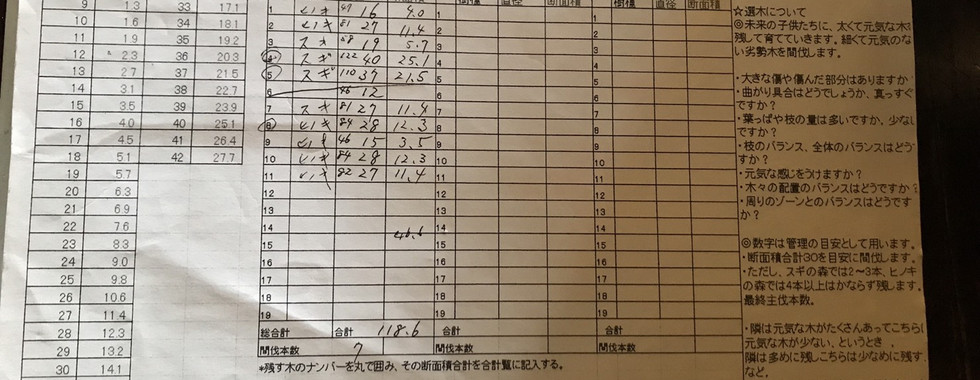 樹種 直径 断面積 樹種 直径 断面積
9 1.3 33 17.1
10 1.6 34 18.1
11 1.9 35 19.2
12 2.3 36 20.3
13 2.7 37 21.5
14 3.1 38 22.7
15 3.5 39 23.9
16 4.0 40 25.1
17 4.5 41 26.4
18 5.1 42 27.7
19 5.7
20 6.3
21 6.9
22 7.6
23 8.3
24 9.0
25 9.8
26 10.6
27 11.4
28 12.3
29 13.2
30 14.1
1 ヒノキ 49 16 4.0
2 ヒノキ 81 27 11.4
3 スギ 58 19 5.7
4 スギ 122 40 25.1
5 スギ 110 37 21.5
6 46 12
7 スギ 81 27 11.4
8 ヒノキ 84 28 12.3
9 ヒノキ 46 15 3.5
10 ヒノキ 84 28 12.3
11 ヒノキ 82 27 11.4
12
13
14 46.6
15
16
17
18
19
総合計 合計 118.6 合計 合計
間伐本数 7 間伐本数 間伐本数
*残す木のナンバーを丸で囲み、その断面積合計を合計覧に記入する。
☆選木について
◎未来の子供たちに、太くて元気な木を
残して育てていきます。細くて元気のな
い劣勢木を間伐します。
・大きな傷や傷んだ部分はありますか
・曲がり具合はどうでしょうか、真っすぐ
ですか?
・葉っぱや枝の量は多いですか、少ない
ですか?
・枝のバランス、全体のバランスはどう
すか?
・元気な感じをうけますか?
・木々の配置のバランスはどうですか?
・周りのゾーンとのバランスはどうです
か?
◎数字は管理の目安として用います。
・断面積合計30を目安に間伐します。
・ただし、スギの森では2〜3本、ヒノキ
の森では4本以上はかならず残します。
最終主伐本数。
・隣は元気な木がたくさんあってこちら
元気な木が少ない、というとき、
隣は多めに残しこちらは少なめに残す
など。